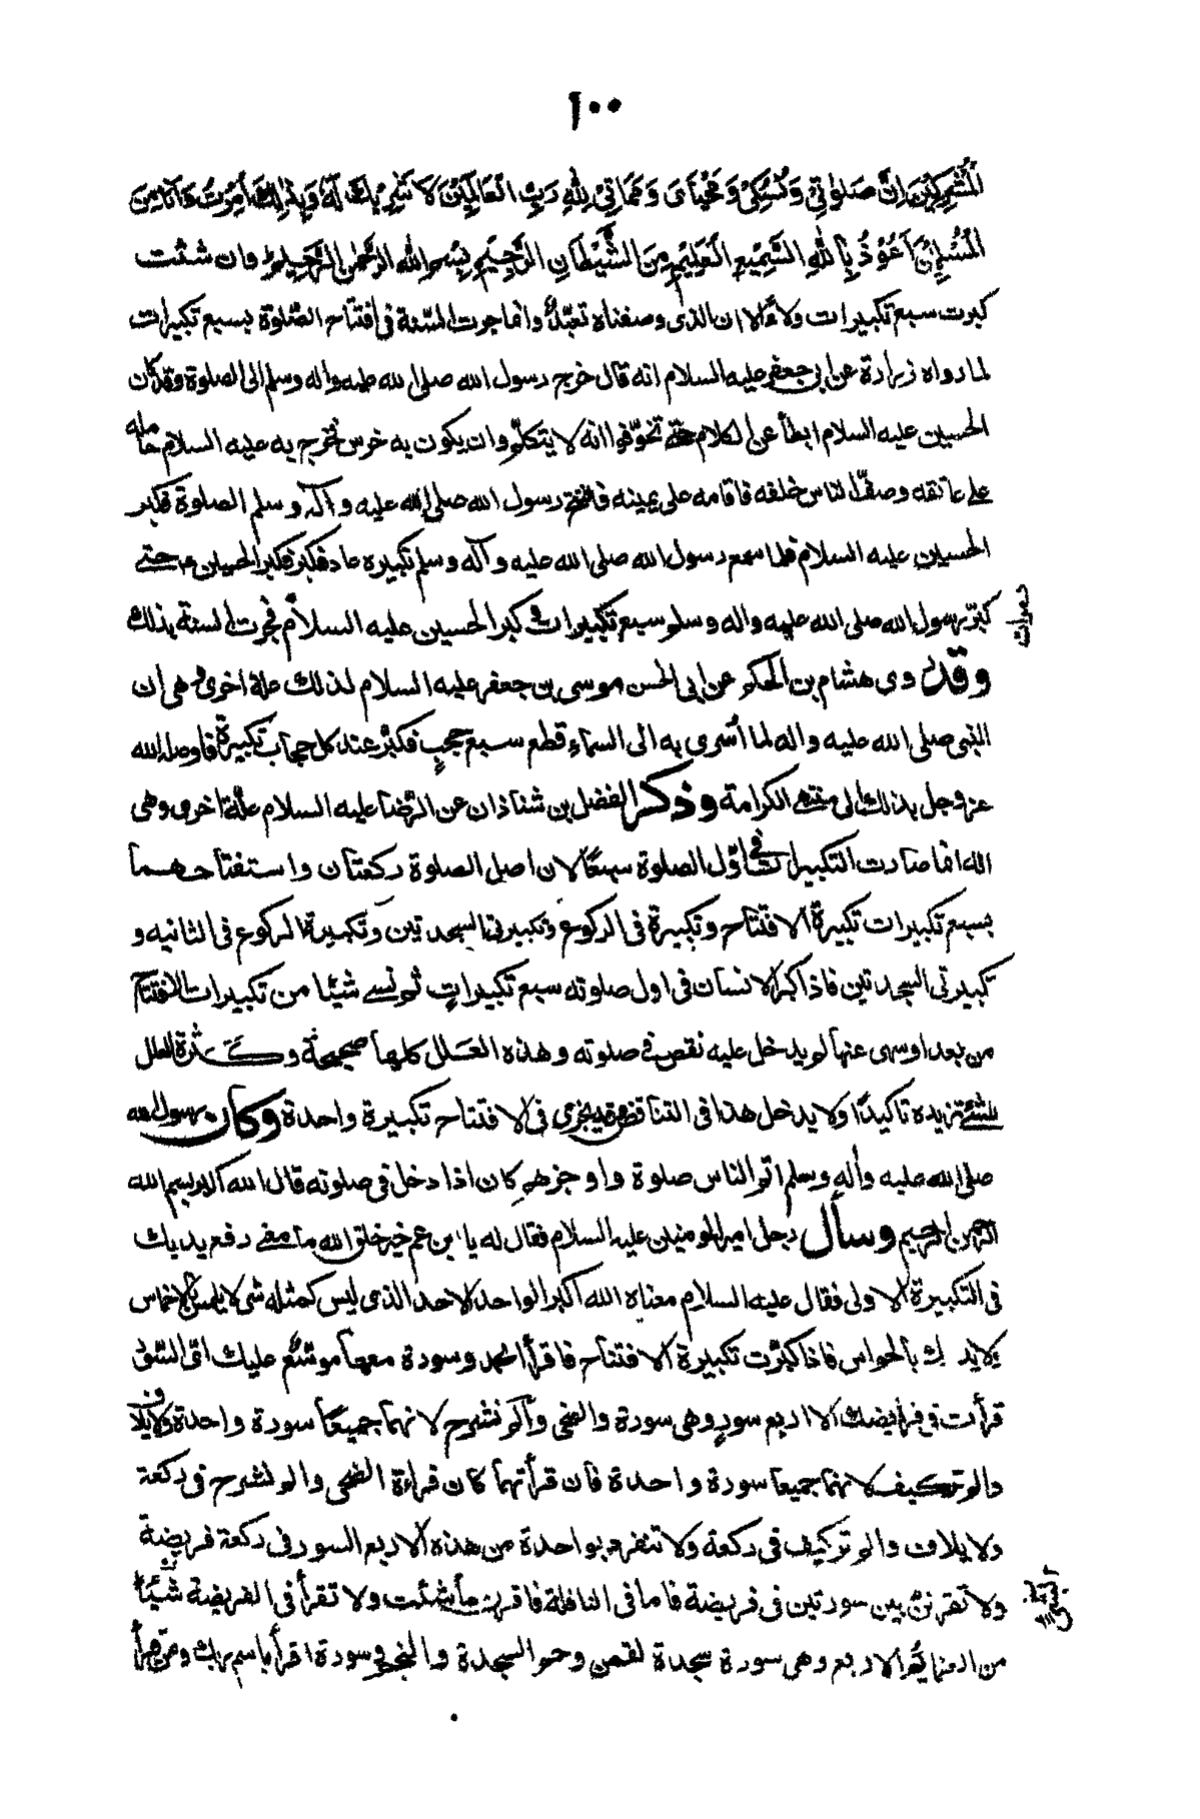 ١٠٠
الْمُشْرِكِيْنَ اِنَّ صَلوٰتِيْ وَنُسُكِيْ وَمَحْيَايَ وَمَمَاتِيْ لِلّٰهِ رَبِّ الْعَالَمِيْنَ لَا شَرِيْكَ لَهٗ وَبِذٰلِكَ اُمِرْتُ وَاَنَا مِنَ
الْمُسْلِمِيْنَ اَعُوْذُ بِاللّٰهِ السَّمِيْعِ الْعَلِيْمِ مِنَ الشَّيْطَانِ الرَّجِيْمِ بِسْمِ اللّٰهِ الرَّحْمٰنِ الرَّحِيْمِ وان شئت
كبرت سبع تكبيرات ولاءً الا ان الذى وصفناه تعبّد وانما جرت السنة فى افتتاح الصلوة بسبع تكبيرات
لما رواه زرارة عن ابى جعفر عليه السلام انه قال خرج رسول الله صلى الله عليه واله وسلم الى الصلوة وقد كان
الحسين عليه السلام ابطأ عن الكلام حتى تخوّفوا انه لا يتكلم وان يكون به خرس فخرج به عليه السلام حامله
على عاتقه وصفّ الناس خلفه فاقامه على يمينه فافتتح رسول الله صلى الله عليه وآله وسلم الصلوة فكبر
الحسين عليه السلام فلما سمع رسول الله صلى الله عليه وآله وسلم تكبيره عاد فكبر فكبر الحسين ع حتى
كبّر رسول الله صلى الله عليه واله وسلم سبع تكبيرات و كبر الحسين عليه السلام فجرت السنة بذلك
وقد روى هشام بن الحكم عن ابى الحسن موسى بن جعفر عليه السلام لذلك علة اخرى وهى ان
النبى صلى الله عليه واله لما أسرى به الى السماء قطع سبع حجبٍ فكبّر عند كل حجاب تكبيرة فاوصله الله
عز وجل بذلك الى منتهى الكرامة وذكر الفضل بن شاذان عن الرضا عليه السلام علة اخرى وهى
انه انما صارت التكبيرات فى اوّل الصلوة سبعًا لان اصل الصلوة ركعتان واستفتاحهما
بسبع تكبيرات تكبيرة الافتتاح وتكبيرة فى الركوع وتكبيرتى السجدتين وتكبيرة الركوع فى الثانيه و
تكبيرتى السجدتين فاذا كبر الانسان فى اول صلوته سبع تكبيراتٍ ثم نسى شيئا من تكبيرات الافتتاح
من بعد او سهى عنها لم يدخل عليه نقص فى صلوته وهذه العلل كلها صحيحة وكثرة العلل
للشئ تزيده تاكيدًا ولا يدخل هذا فى التناقض وقد يجزى فى الافتتاح تكبيرة واحدة وكان رسول الله
صلى الله عليه واله وسلم اتم الناس صلوة واوجزهم كان اذا دخل فى صلوته قال الله اكبر بسم الله
الرحمن الرحيم وسأل رجل امير المومنين عليه السلام فقال له يا ابن عم خير خلق الله ما معنى رفع يديك
فى التكبيرة الاولى فقال عليه السلام معناه الله اكبر الواحد الاحد الذى ليس كمثله شى لا يلمس بالاخماس
ولا يدرك بالحواس فاذا كبّرت تكبيرة الافتتاح فاقرأ الحمد وسورة معها موسّع عليك اىّ السور
قرأت فى فرائضك الا اربع سور وهى سورة والضحى وألم نشرح لانهما جميعًا سورة واحدة ولايلاف
والم تركيف لانهما جميعا سورة واحدة فان قرأتها كان قراءة الضحى والم نشرح فى ركعة
ولايلاف والم تركيف فى ركعة ولا تنفرد بواحدة من هذه الاربع السور فى ركعة فريضة
ولا تقرنن بين سورتين فى فريضة فاما فى النافلة فاقرن ما شئت ولا تقرأ فى الفريضة شيئًا
من العزائم الاربع وهى سورة سجدة لقمن وحم السجدة والنجم وسورة اقرأ باسم ربك ومن قرأ